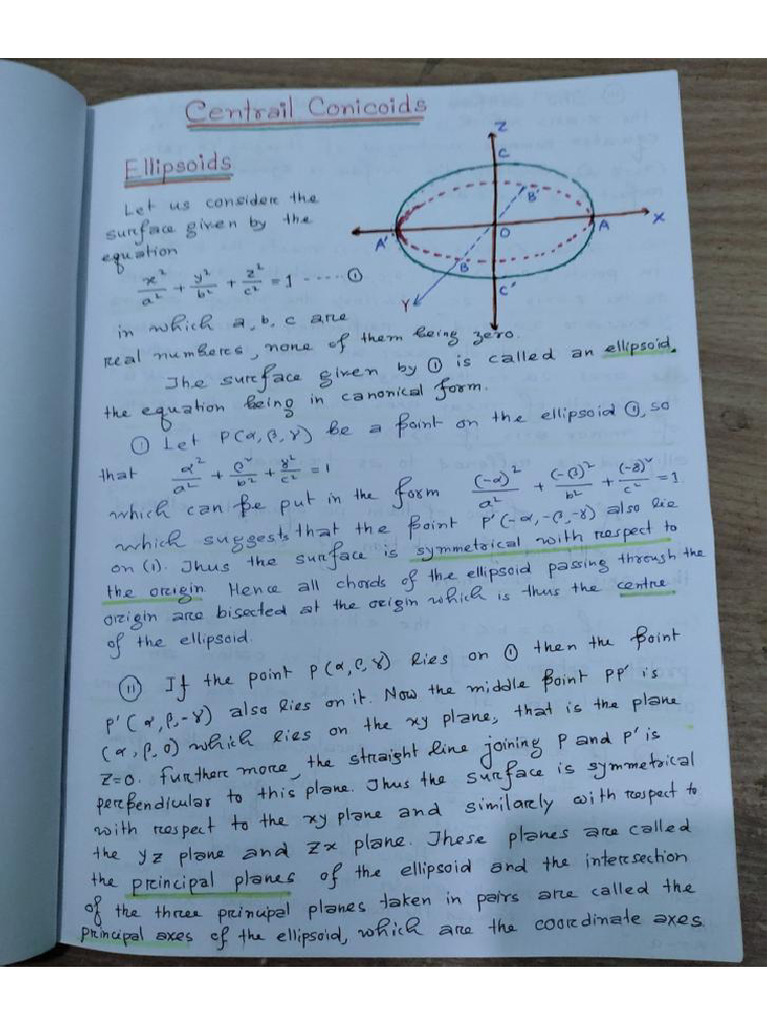 Centrail Conicoids
Ellipsoids
Z
C
B'
X
A'
O
A
B
C'
Y
Let us consider the
surface given by the
equation
x²/a² + y²/b² + z²/c² = 1 ----- ①
in which a, b, c are
real numbers, none of them being zero.
The surface given by ① is called an ellipsoid,
the equation being in canonical form.
① Let P(α, β, γ) be a point on the ellipsoid ①, so
that α²/a² + β²/b² + γ²/c² = 1
which can be put in the form (-α)²/a² + (-β)²/b² + (-γ)²/c² = 1
which suggests that the point P'(-α, -β, -γ) also lie
on (1). Thus the surface is symmetrical with respect to
the origin. Hence all chords of the ellipsoid passing through the
origin are bisected at the origin which is thus the centre
of the ellipsoid.
⑪ If the point P(α, β, γ) lies on ① then the point
P'(α, β, -γ) also lies on it. Now the middle point PP' is
(α, β, 0) which lies on the xy plane, that is the plane
Z=0. Furthermore, the straight line joining P and P' is
perpendicular to this plane. Thus the surface is symmetrical
with respect to the xy plane and similarly with respect to
the yz plane and zx plane. These planes are called
the principal planes of the ellipsoid and the intersection
of the three principal planes taken in pairs are called the
principal axes of the ellipsoid, which are the coordinate axes.